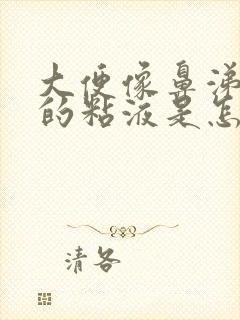 大便像鼻涕
的粘液是怎
清各